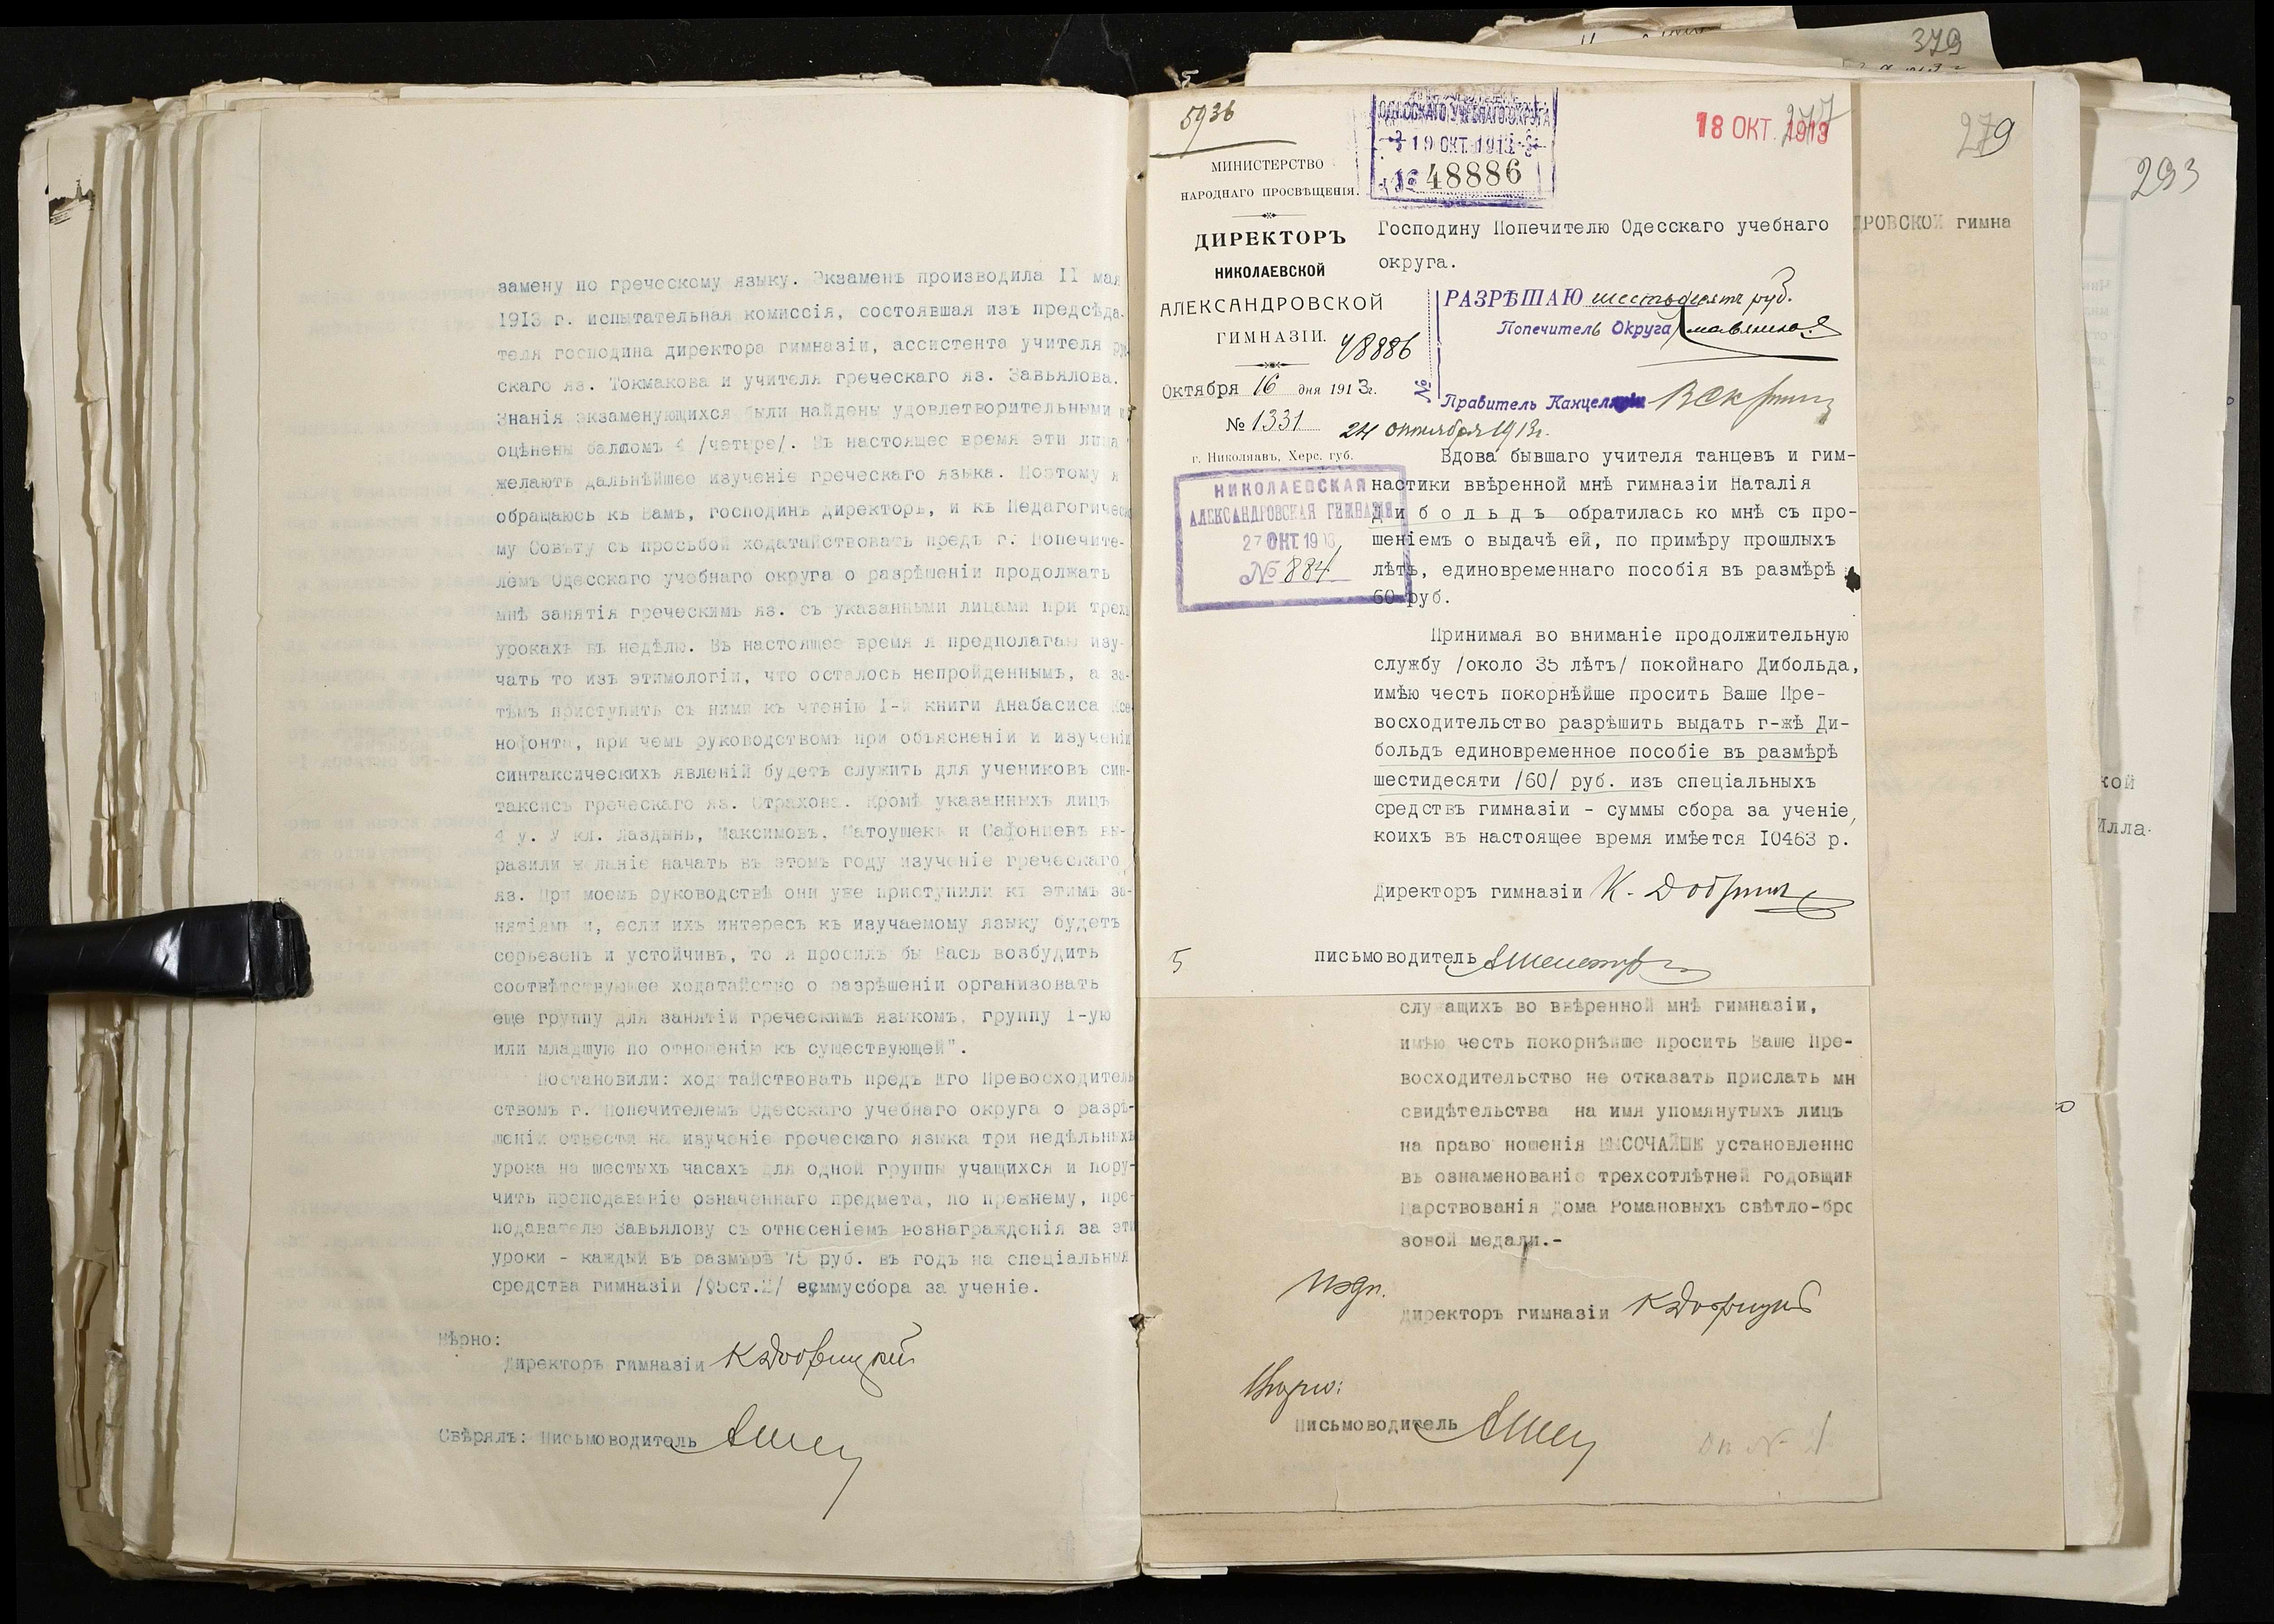 замену по греческому языку. Экзаменъ производила II мая
1913 г. испытательная комиссія, состоявшая изъ предсѣда-
теля господина директора гимназіи, ассистента учителя ру
скаго яз. Токмакова и учителя греческаго яз. Завьялова.
Знанія экзаменующихся были найдены удовлетворительными и
оцѣнены балломъ 4 /четыре/. Въ настоящее время эти лица
желаютъ дальнѣйшее изученіе греческаго языка. Поэтому я
обращаюсь къ Вамъ, господинъ директоръ, и къ Педагогическо
му Совѣту съ просьбой ходатайствовать предъ г. Попечите-
лемъ Одесскаго учебнаго округа о разрѣшеніи продолжать
мнѣ занятія греческимъ яз. съ указанными лицами при трехъ
урокахъ въ недѣлю. Въ настоящее время я предполагаю изу-
чать то изъ этимологіи, что осталось непройденнымъ, а за-
тѣмъ приступить съ ними къ чтенію I-й книги Анабасиса Ксе
нофонта, при чемъ руководствомъ при объясненіи и изученіи
синтаксическихъ явленій будетъ служить для учениковъ син-
таксисъ греческаго яз. Страхова. Кромѣ указанныхъ лицъ
4 у. У кл. Лаздынь, Максимовъ, Матоушекъ и Сафонцевъ вы-
разили желаніе начать въ этомъ году изученіе греческаго
яз. При моемъ руководствѣ они уже приступили къ этимъ за-
нятіямъ и, если ихъ интересъ къ изучаемому языку будетъ
серьезенъ и устойчивъ, то я просилъ бы Васъ возбудить
соотвѣтствующее ходатайство о разрѣшеніи организовать
еще группу для занятій греческимъ языкомъ, группу I-ую
или младшую по отношенію къ существующей".
Постановили: ходатайствовать предъ Его Превосходитель
ствомъ г. Попечителемъ Одесскаго учебнаго округа о разрѣ-
шеніи отвести на изученіе греческаго языка три недѣльныхъ
урока на шестыхъ часахъ для одной группы учащихся и пору-
чить преподаваніе означеннаго предмета, по прежнему, пре-
подавателю Завьялову съ отнесеніемъ вознагражденія за эти
уроки - каждый въ размѣрѣ 75 руб. въ годъ на спеціальныя
средства гимназіи /§5ст.2/ суммусбора за ученіе.
Вѣрно:
Директоръ гимназіи КДобрицкій
Свѣрялъ: Письмоводитель
5936
МИНИСТЕРСТВО
НАРОДНАГО ПРОСВѢЩЕНІЯ.
ДИРЕКТОРЪ
НИКОЛАЕВСКОЙ
АЛЕКСАНДРОВСКОЙ
ГИМНАЗІИ.
48886
Октября 16 дня 1913г.
№ 1331
г. Николаевъ, Херс. губ.
НИКОЛАЕВСКАЯ
АЛЕКСАНДРОВСКАЯ ГИМНАЗІЯ
27 ОКТ. 1913
№ 884
ОДЕССКАГО УЧЕБНАГО ОКРУГА
19 ОКТ. 1913
№ 48886
18 ОКТ. 1913
277
Господину Попечителю Одесскаго учебнаго
округа.
РАЗРѢШАЮ шестьдесятъ руб.
Попечитель Округа
№
Правитель Канцеляріи
24 октября 1913г.
Вдова бывшаго учителя танцевъ и гим-
настики ввѣренной мнѣ гимназіи Наталія
Д и б о л ь д ъ обратилась ко мнѣ съ про-
шеніемъ о выдачѣ ей, по примѣру прошлыхъ
лѣтъ, единовременнаго пособія въ размѣрѣ
60 руб.
Принимая во вниманіе продолжительную
службу /около 35 лѣтъ/ покойнаго Дибольда,
имѣю честь покорнѣйше просить Ваше Пре-
восходительство разрѣшить выдать г-жѣ Ди-
больдъ единовременное пособіе въ размѣрѣ
шестидесяти /60/ руб. изъ спеціальныхъ
средствъ гимназіи - суммы сбора за ученіе,
коихъ въ настоящее время имѣется I0463 р.
Директоръ гимназіи К. Добриц
5
письмоводитель
служащихъ во ввѣренной мнѣ гимназіи,
имѣю честь покорнѣйше просить Ваше Пре-
восходительство не отказать прислать мн
свидѣтельства на имя упомянутыхъ лицъ
на право ношенія ВЫСОЧАЙШЕ установленно
въ ознаменованіе трехсотлѣтней годовщин
Царствованія Дома Романовыхъ свѣтло-бро
зовой медали.-
Директоръ гимназіи КДобрицкій
Вѣрно:
Письмоводитель
379
279
293
ДРОВСКОЙ гимна
кой
Илла-